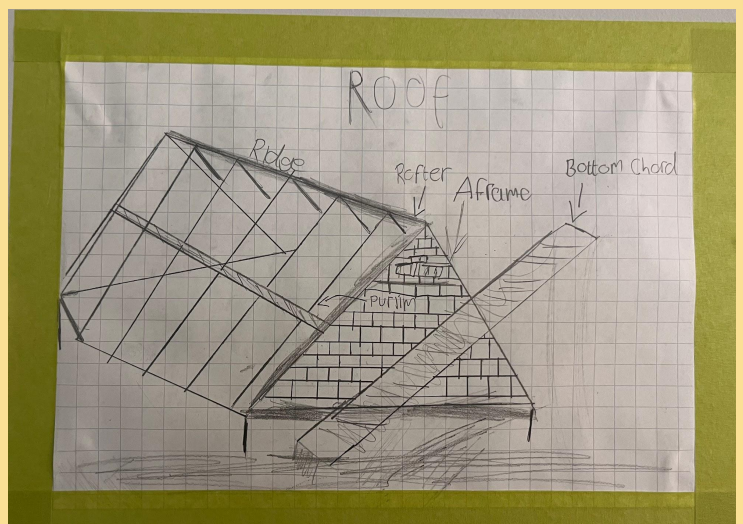 ROOF
Ridge
Rafter
Aframe
Bottom Chord
purlin